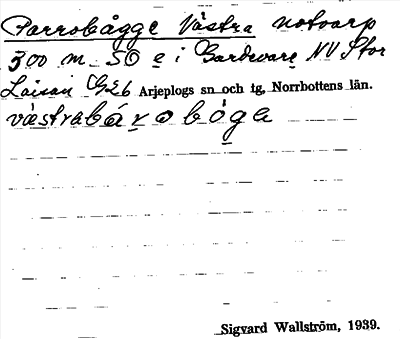 Parrobågge Västra notvarp
300 m SO e i Gardvare NV Stor
Laisan G26 Arjeplogs sn och tg, Norrbottens län.
västra bárobóge
Sigvard Wallström, 1939.